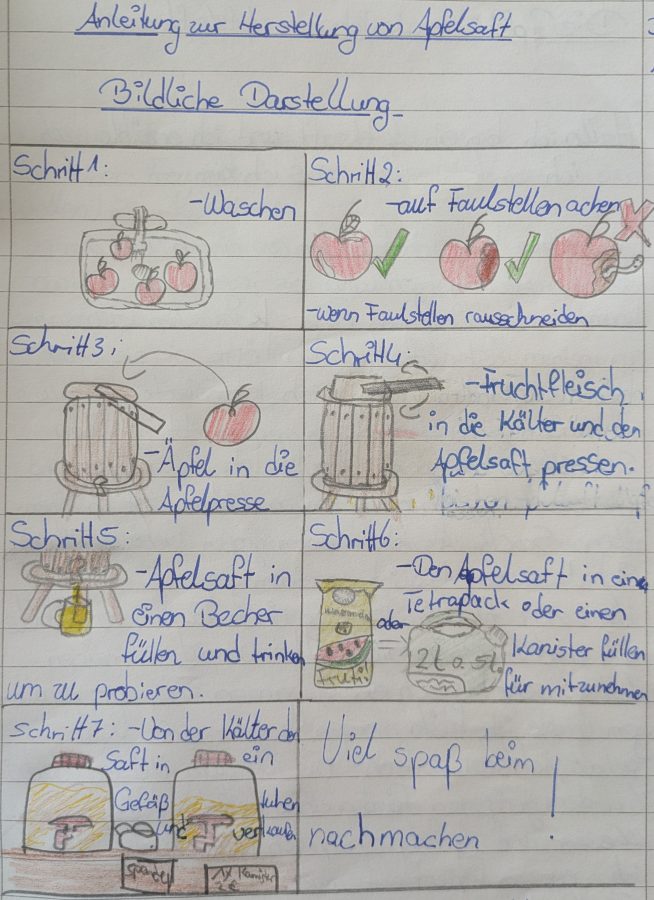 Anleitung zur Herstellung von Apfelsaft
Bildliche Darstellung
Schritt 1:
-Waschen
Schritt 2:
-auf Faulstellen achen
-wenn Faulstellen rausschneiden
Schritt 3:
-Äpfel in die
Apfelpresse
Schritt 4:
-Fruchtfleisch
in die Kälter und den
Apfelsaft pressen.
Schritt 5:
-Apfelsaft in
einen Becher
füllen und trinken
um zu probieren.
Schritt 6:
-Den Apfelsaft in eine
Tetrapack oder einen
Kanister füllen
für mitzunehmen
oder
Frutti
2l o. 5l.
Schritt 7: -Von der Kälter den
Saft in ein
Gefäß
und verkaufen
1x Kanister
2€
Viel spaß beim
nachmachen !